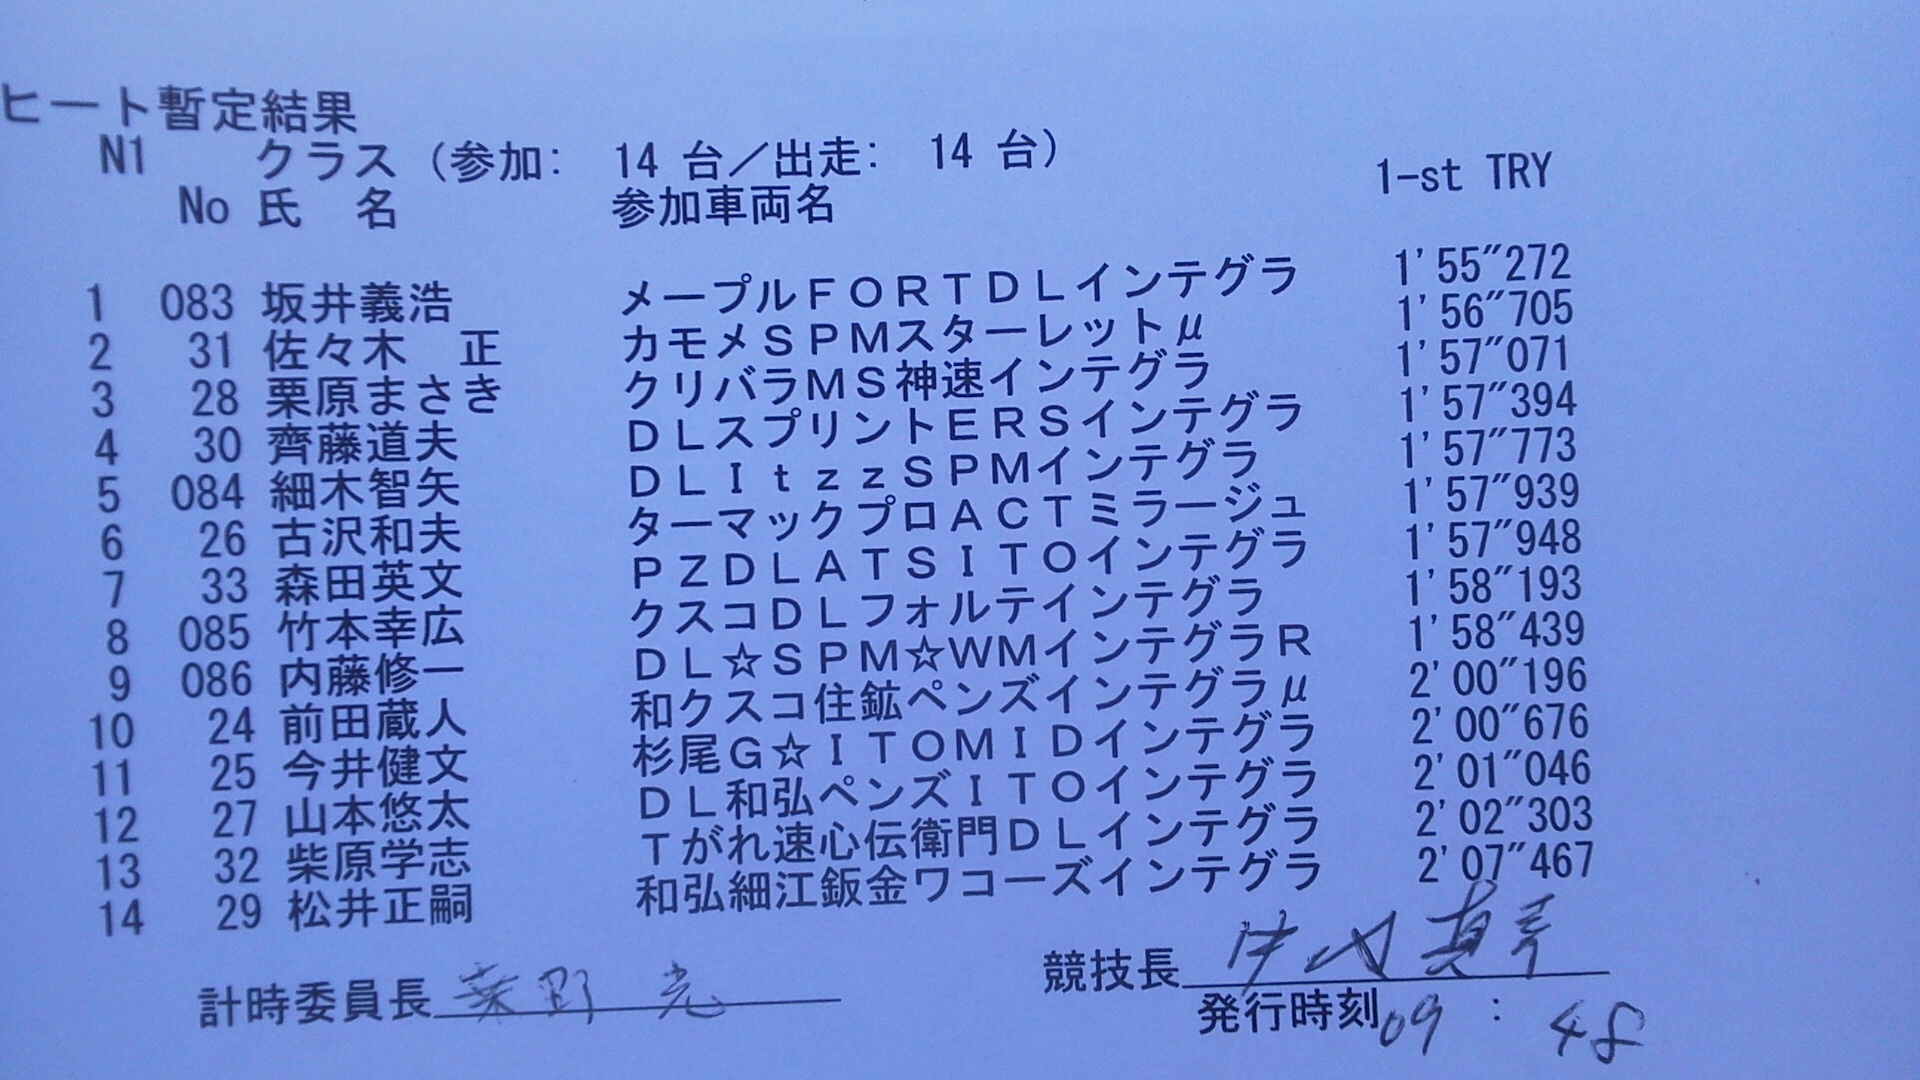 ヒート暫定結果
N1 クラス (参加: 14 台/出走: 14 台)
No 氏 名 参加車両名 1-st TRY
1 083 坂井義浩 メープルFORTDLインテグラ 1'55"272
2 31 佐々木 正 カモメSPMスターレットμ 1'56"705
3 28 栗原まさき クリバラMS神速インテグラ 1'57"071
4 30 齊藤道夫 DLスプリントERSインテグラ 1'57"394
5 084 細木智矢 DLItzzSPMインテグラ 1'57"773
6 26 古沢和夫 ターマックプロACTミラージュ 1'57"939
7 33 森田英文 PZDLATSITOインテグラ 1'57"948
8 085 竹本幸広 クスコDLフォルテインテグラ 1'58"193
9 086 内藤修一 DL☆SPM☆WMインテグラR 1'58"439
10 24 前田蔵人 和クスコ住鉱ペンズインテグラμ 2'00"196
11 25 今井健文 杉尾G☆ITOMIDインテグラ 2'00"676
12 27 山本悠太 DL和弘ペンズITOインテグラ 2'01"046
13 32 柴原学志 Tがれ速心伝衛門DLインテグラ 2'02"303
14 29 松井正嗣 和弘細江鈑金ワコーズインテグラ 2'07"467
計時委員長 競技長
発行時刻 09 : 48